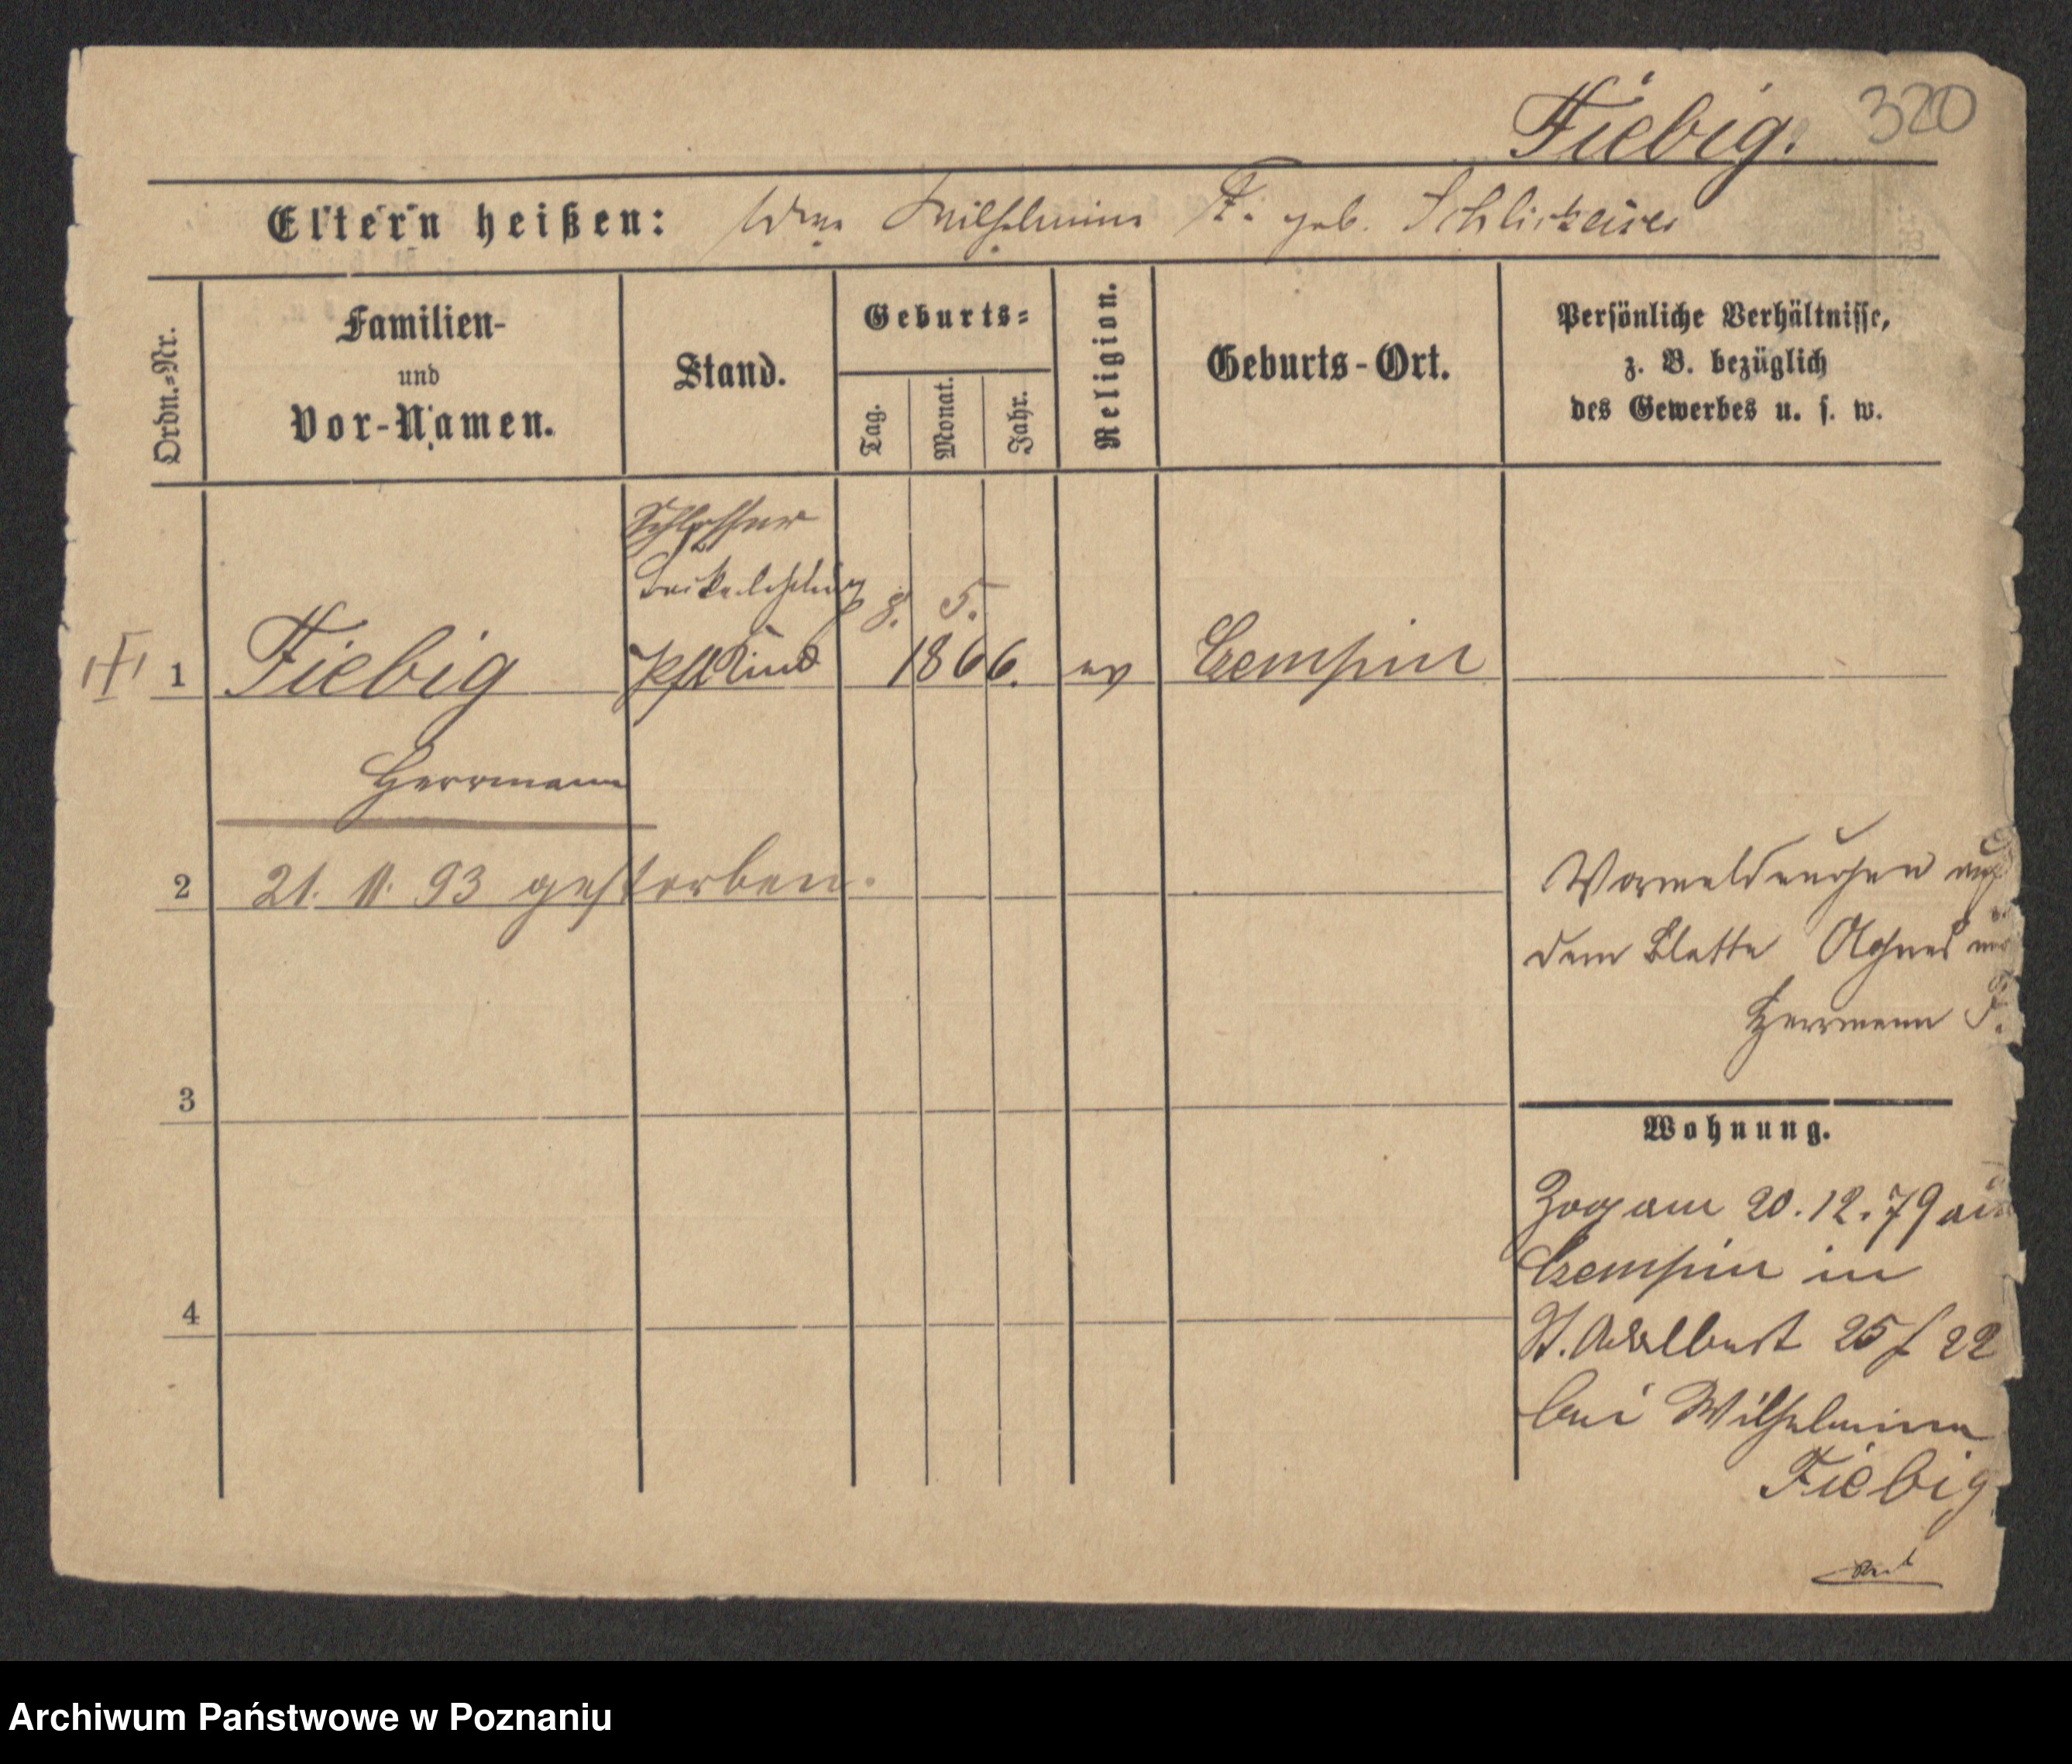 Fiebig. 320
Eltern heißen: Wwe Wilhelmine F. geb. Schlickeiser
Ordn.-Nr.
Familien-
und
Vor-Namen.
Stand.
Geburts-
Tag.
Monat.
Jahr.
Religion.
Geburts-Ort.
Persönliche Verhältnisse,
z. B. bezüglich
des Gewerbes u. s. w.
Schlosser
8. 5.
1 Fiebig Pflkind 1866. ev Czempin
Herrmann
2 21. 11. 93 gestorben.
Vormeldungen auf
dem Blatte Agnes und
Herrmann F.
3
Wohnung.
Zog am 20.12.79 aus
Czempin in
4
St. Adalbert 25/22
bei Wilhelmine
Fiebig
Archiwum Państwowe w Poznaniu